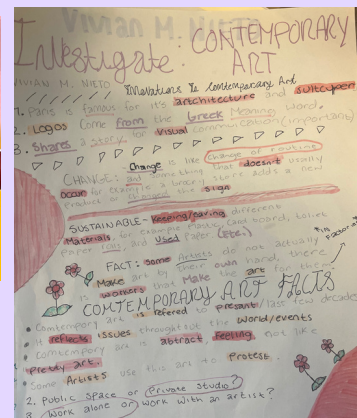 Vivian M. Nieto
Investigate: CONTEMPORARY
ART
VIVIAN M. NIETO Inovations In Contemporary Art
1. Paris is famous for it's architecture and
2. Logos come from the Greek Meaning word,
3. Shares a story for visual communication (important)
Change is like change of routine
CHANGE: and something that doesn't usually
occur for example a grocery store adds a new
product or changes the sign
SUSTAINABLE- Keeping/caring different
Materials, for example plastic, cardboard, toilet
paper rolls, and used Paper (Etc.)
FACT: Some Artists do not actually
Make art by their own hand, there
is workers that Make the art for them,
CONTEMPORARY ART FACTS
Contempory art is refered to present/last few decades
It reflects issues throughout the world/events
Contempory art is abtract, feeling not like
Pretty art.
Some Artists use this art to Protest.
2. Public space or Private studio?
3. Work alone or work with an artist?